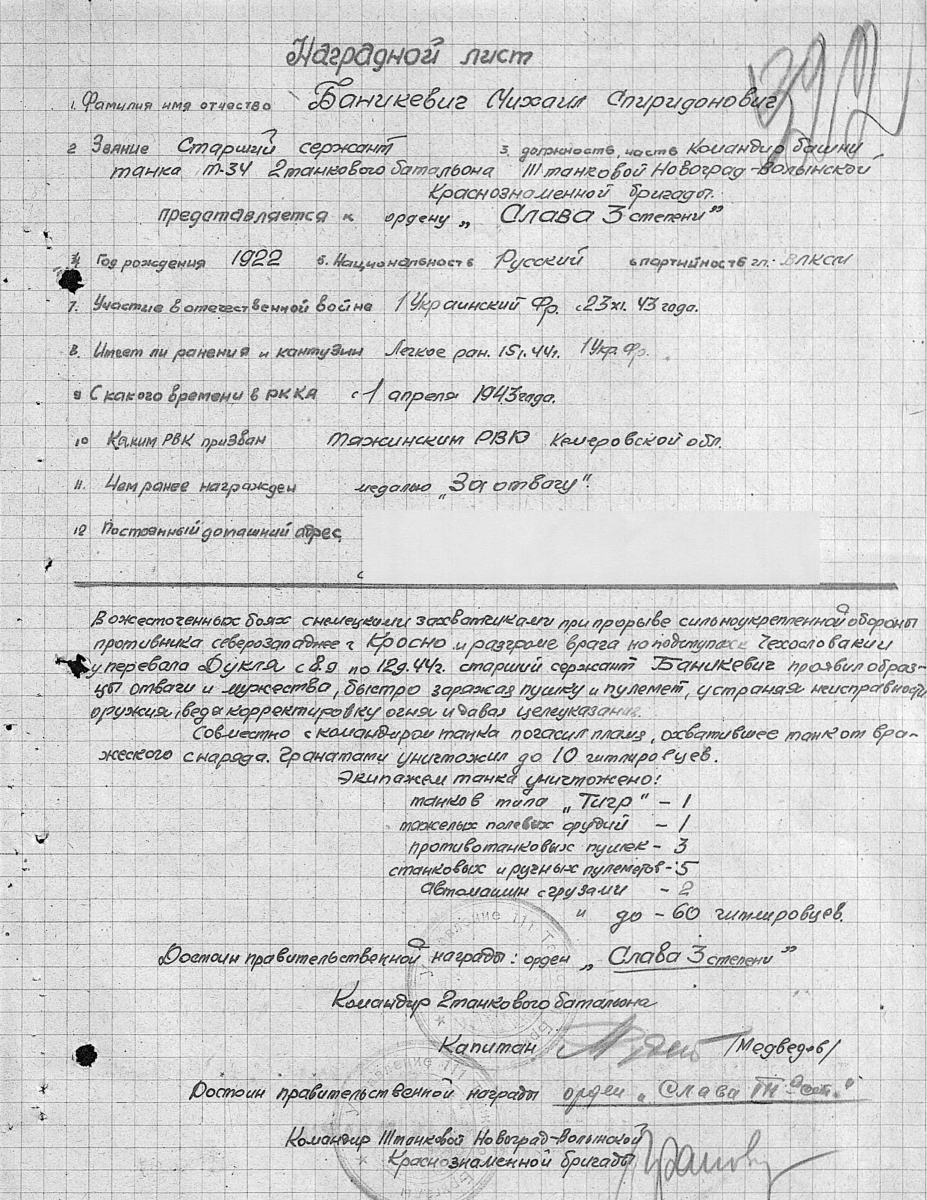 Наградной лист
1. Фамилия имя отчество Баникевич Михаил Спиридонович
2 Звание Старший сержант 3. должность, часть Командир башни
танка Т-34 2 танкового батальона 111 танковой Новоград-Волынской
Краснознаменной бригады.
представляется к ордену „Слава 3 степени"
4 Год рождения 1922 5. Национальность Русский 6 партийность чл. ВЛКСМ
7. Участие в отечественной войне 1 Украинский Фр. с 23 XI. 43 года.
8. Имеет ли ранения и кантузии Легкое ран. 15 I. 44 г. 1 Укр. Фр.
9 С какого времени в РККА с 1 апреля 1943 года.
10 Каким РВК призван Тяжинским РВК Кемеровской обл.
11. Чем ранее награжден медалью „За отвагу".
12 Постоянный домашний адрес
В ожесточенных боях с немецкими захватчиками при прорыве сильноукрепленной обороны
противника северозападнее г Кросно и разгроме врага на подступах к Чехословакии
у перевала Дукля с 8.9 по 12.9.44 г. старший сержант Баникевич проявил образ-
цы отваги и мужества, быстро заряжая пушку и пулемет, устраняя неисправности
оружия, ведя корректировку огня и давая целеуказания.
Совместно с командиром танка погасил пламя, охватившее танк от вра-
жеского снаряда. Гранатами уничтожил до 10 гитлировцев.
Экипажем танка уничтожено:
танков типа „Тигр" - 1
тяжелых полевых орудий - 1
противотанковых пушек - 3
станковых и ручных пулеметов - 5
автомашин с грузами - 2
и до - 60 гитлировцев.
Достоин правительственной награды: орден „Слава 3 степени"
Командир 2 танкового батальона
Капитан /Медведов/
Достоин правительственной награды орден „Слава III ст."
Командир 111 танковой Новоград-Волынской
Краснознаменной бригады